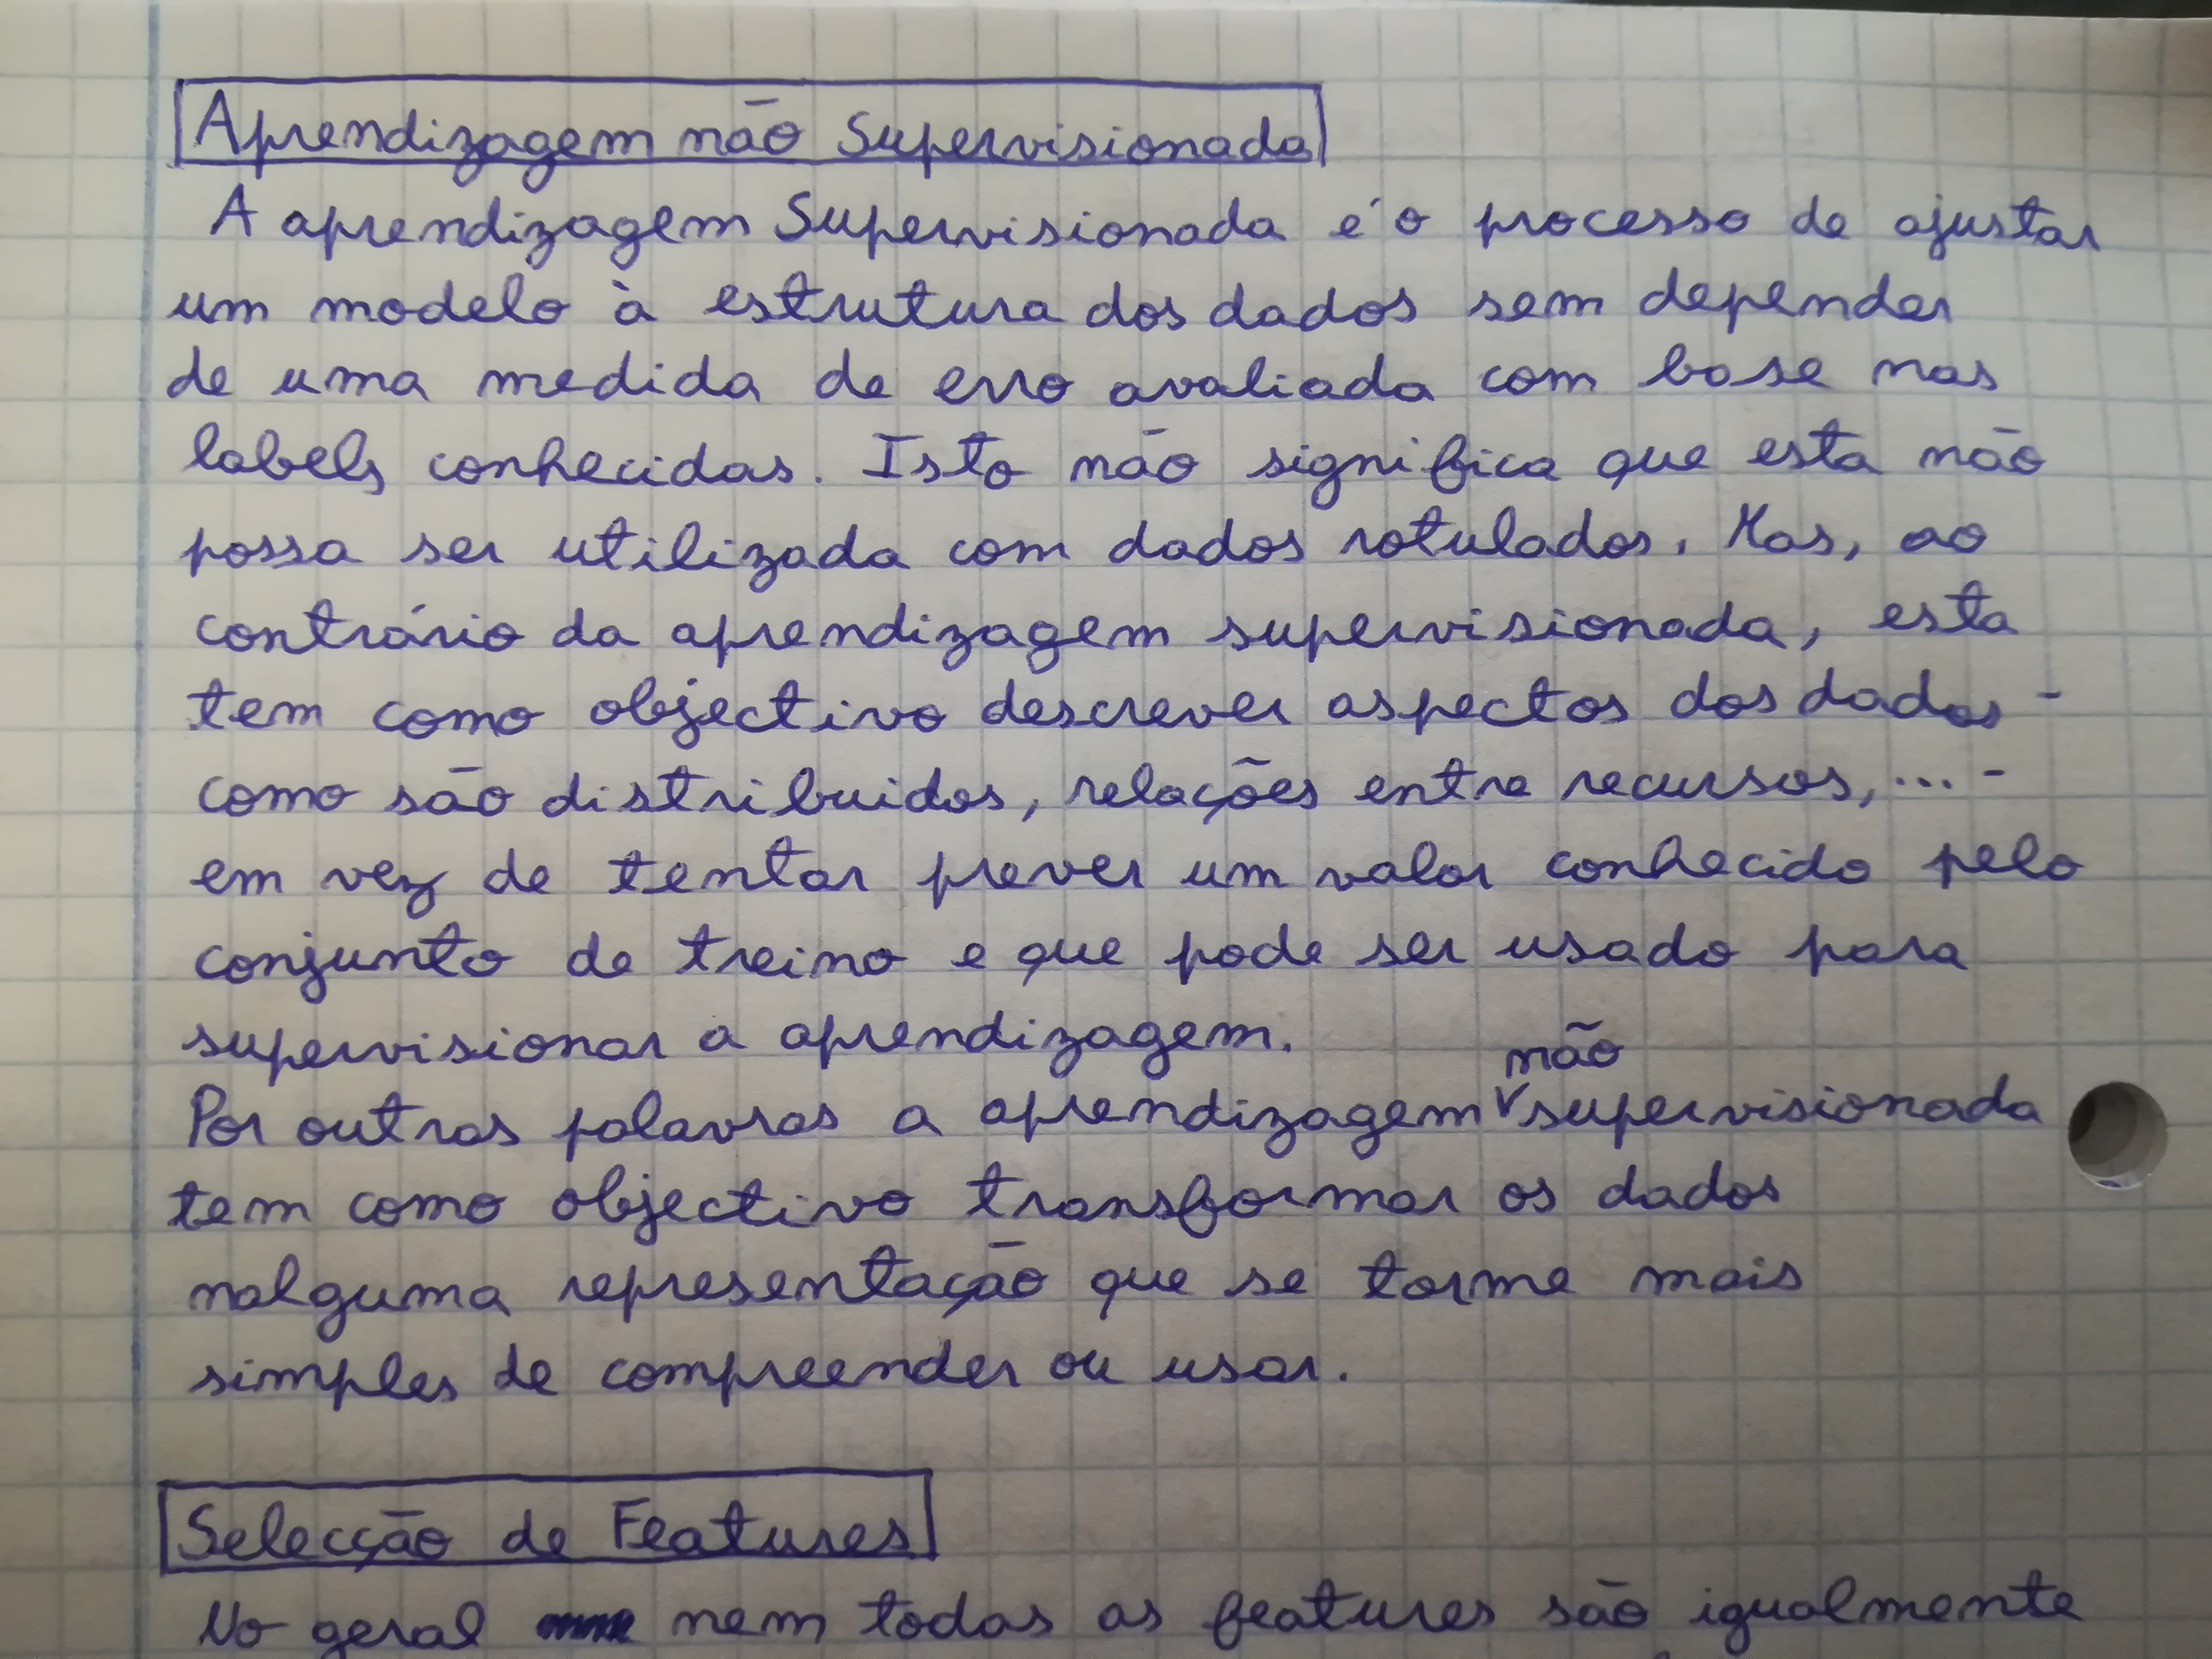 Aprendizagem não Supervisionada
A aprendizagem Supervisionada é o processo de ajustar
um modelo à estrutura dos dados sem depender
de uma medida de erro avaliada com base nas
labels conhecidas. Isto não significa que esta não
possa ser utilizada com dados rotulados. Mas, ao
contrário da aprendizagem supervisionada, esta
tem como objectivo descrever aspectos dos dados -
como são distribuidos, relações entre recursos, ... -
em vez de tentar prever um valor conhecido pelo
conjunto de treino e que pode ser usado para
supervisionar a aprendizagem.
não
Por outras palavras a aprendizagem v supervisionada
tem como objectivo transformar os dados
nalguma representação que se torne mais
simples de compreender ou usar.
Selecção de Features
No geral nem todas as features são igualmente